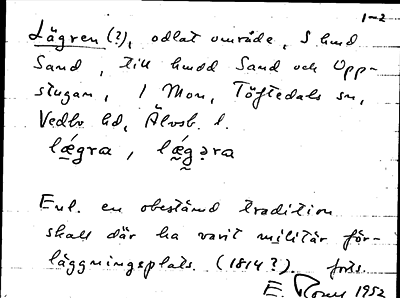 1-2
Lägren (?), odlat område, S hmd
Sand, till hmdd Sand och Upp-
stugan, i Mon, Töftedals sn,
Vedbo hd, Älvsb. l.
lǽgra, lǽgəra
Enl. en obestämd tradition
skall där ha varit militär för-
läggningsplats. (1814?). forts.
E. 1952